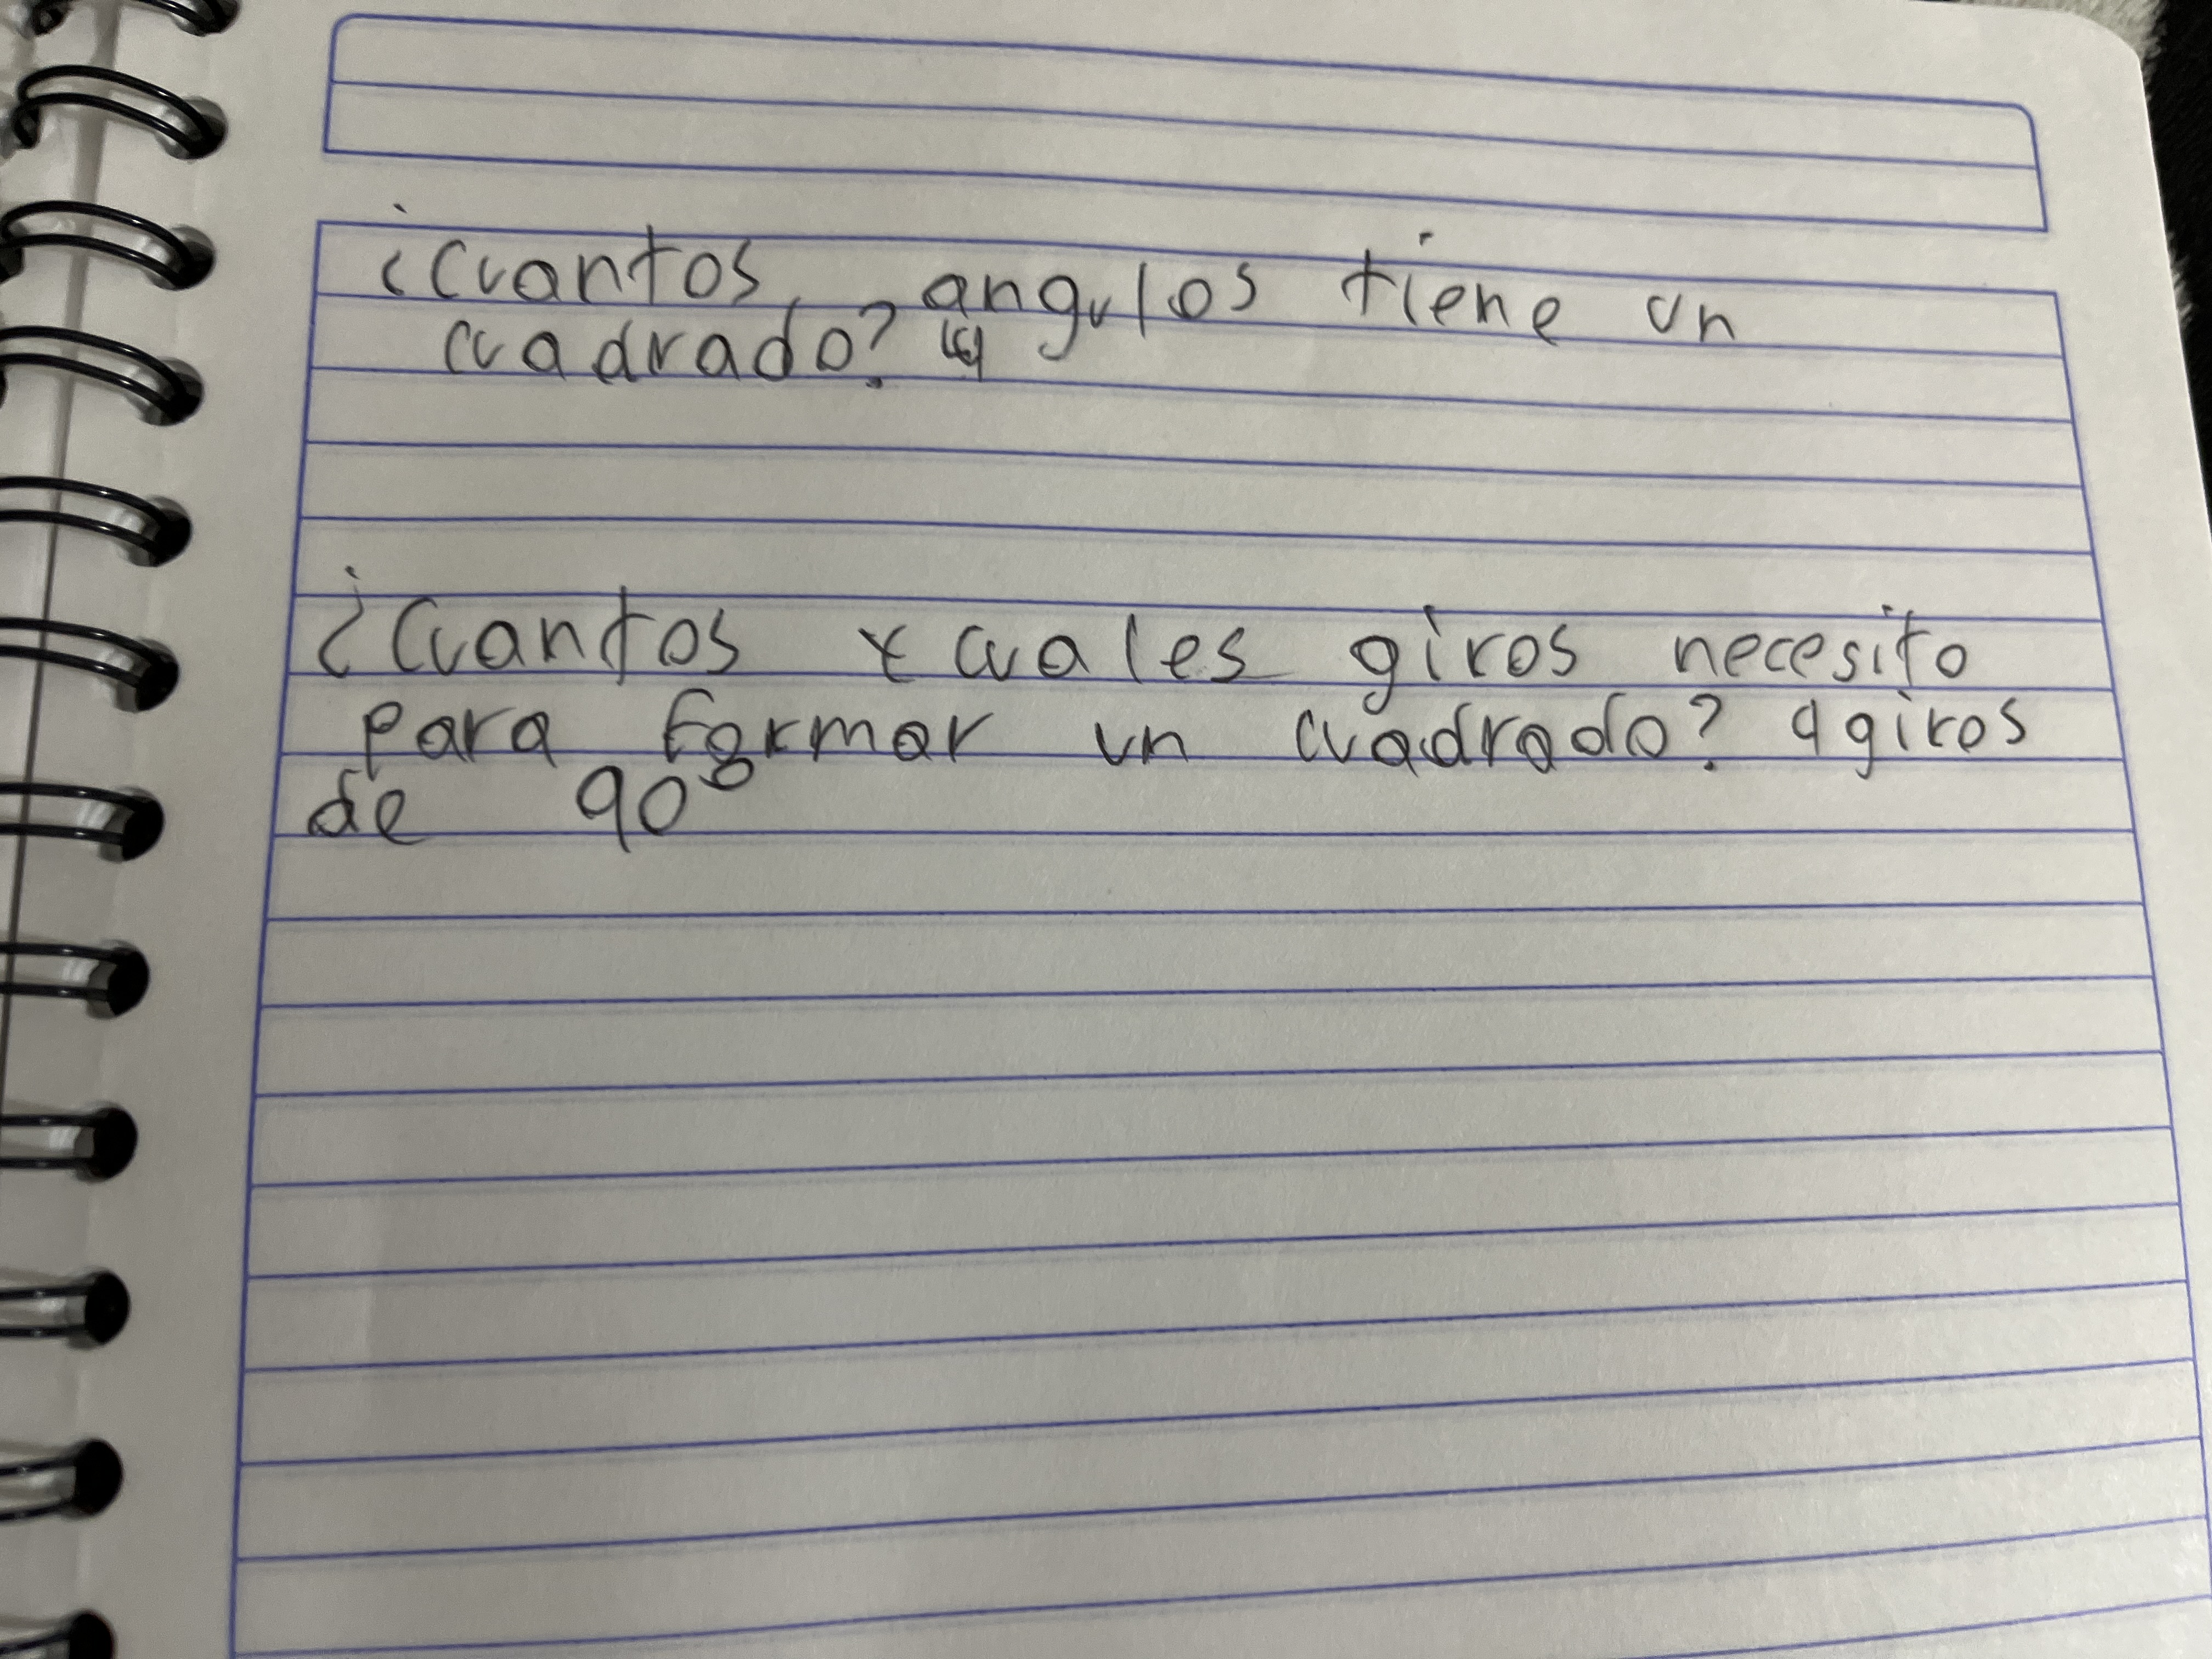 ¿Cuantos angulos tiene un
cuadrado? 4
¿Cuantos y cuales giros necesito
para formar un cuadrado? 4 giros
de 90°